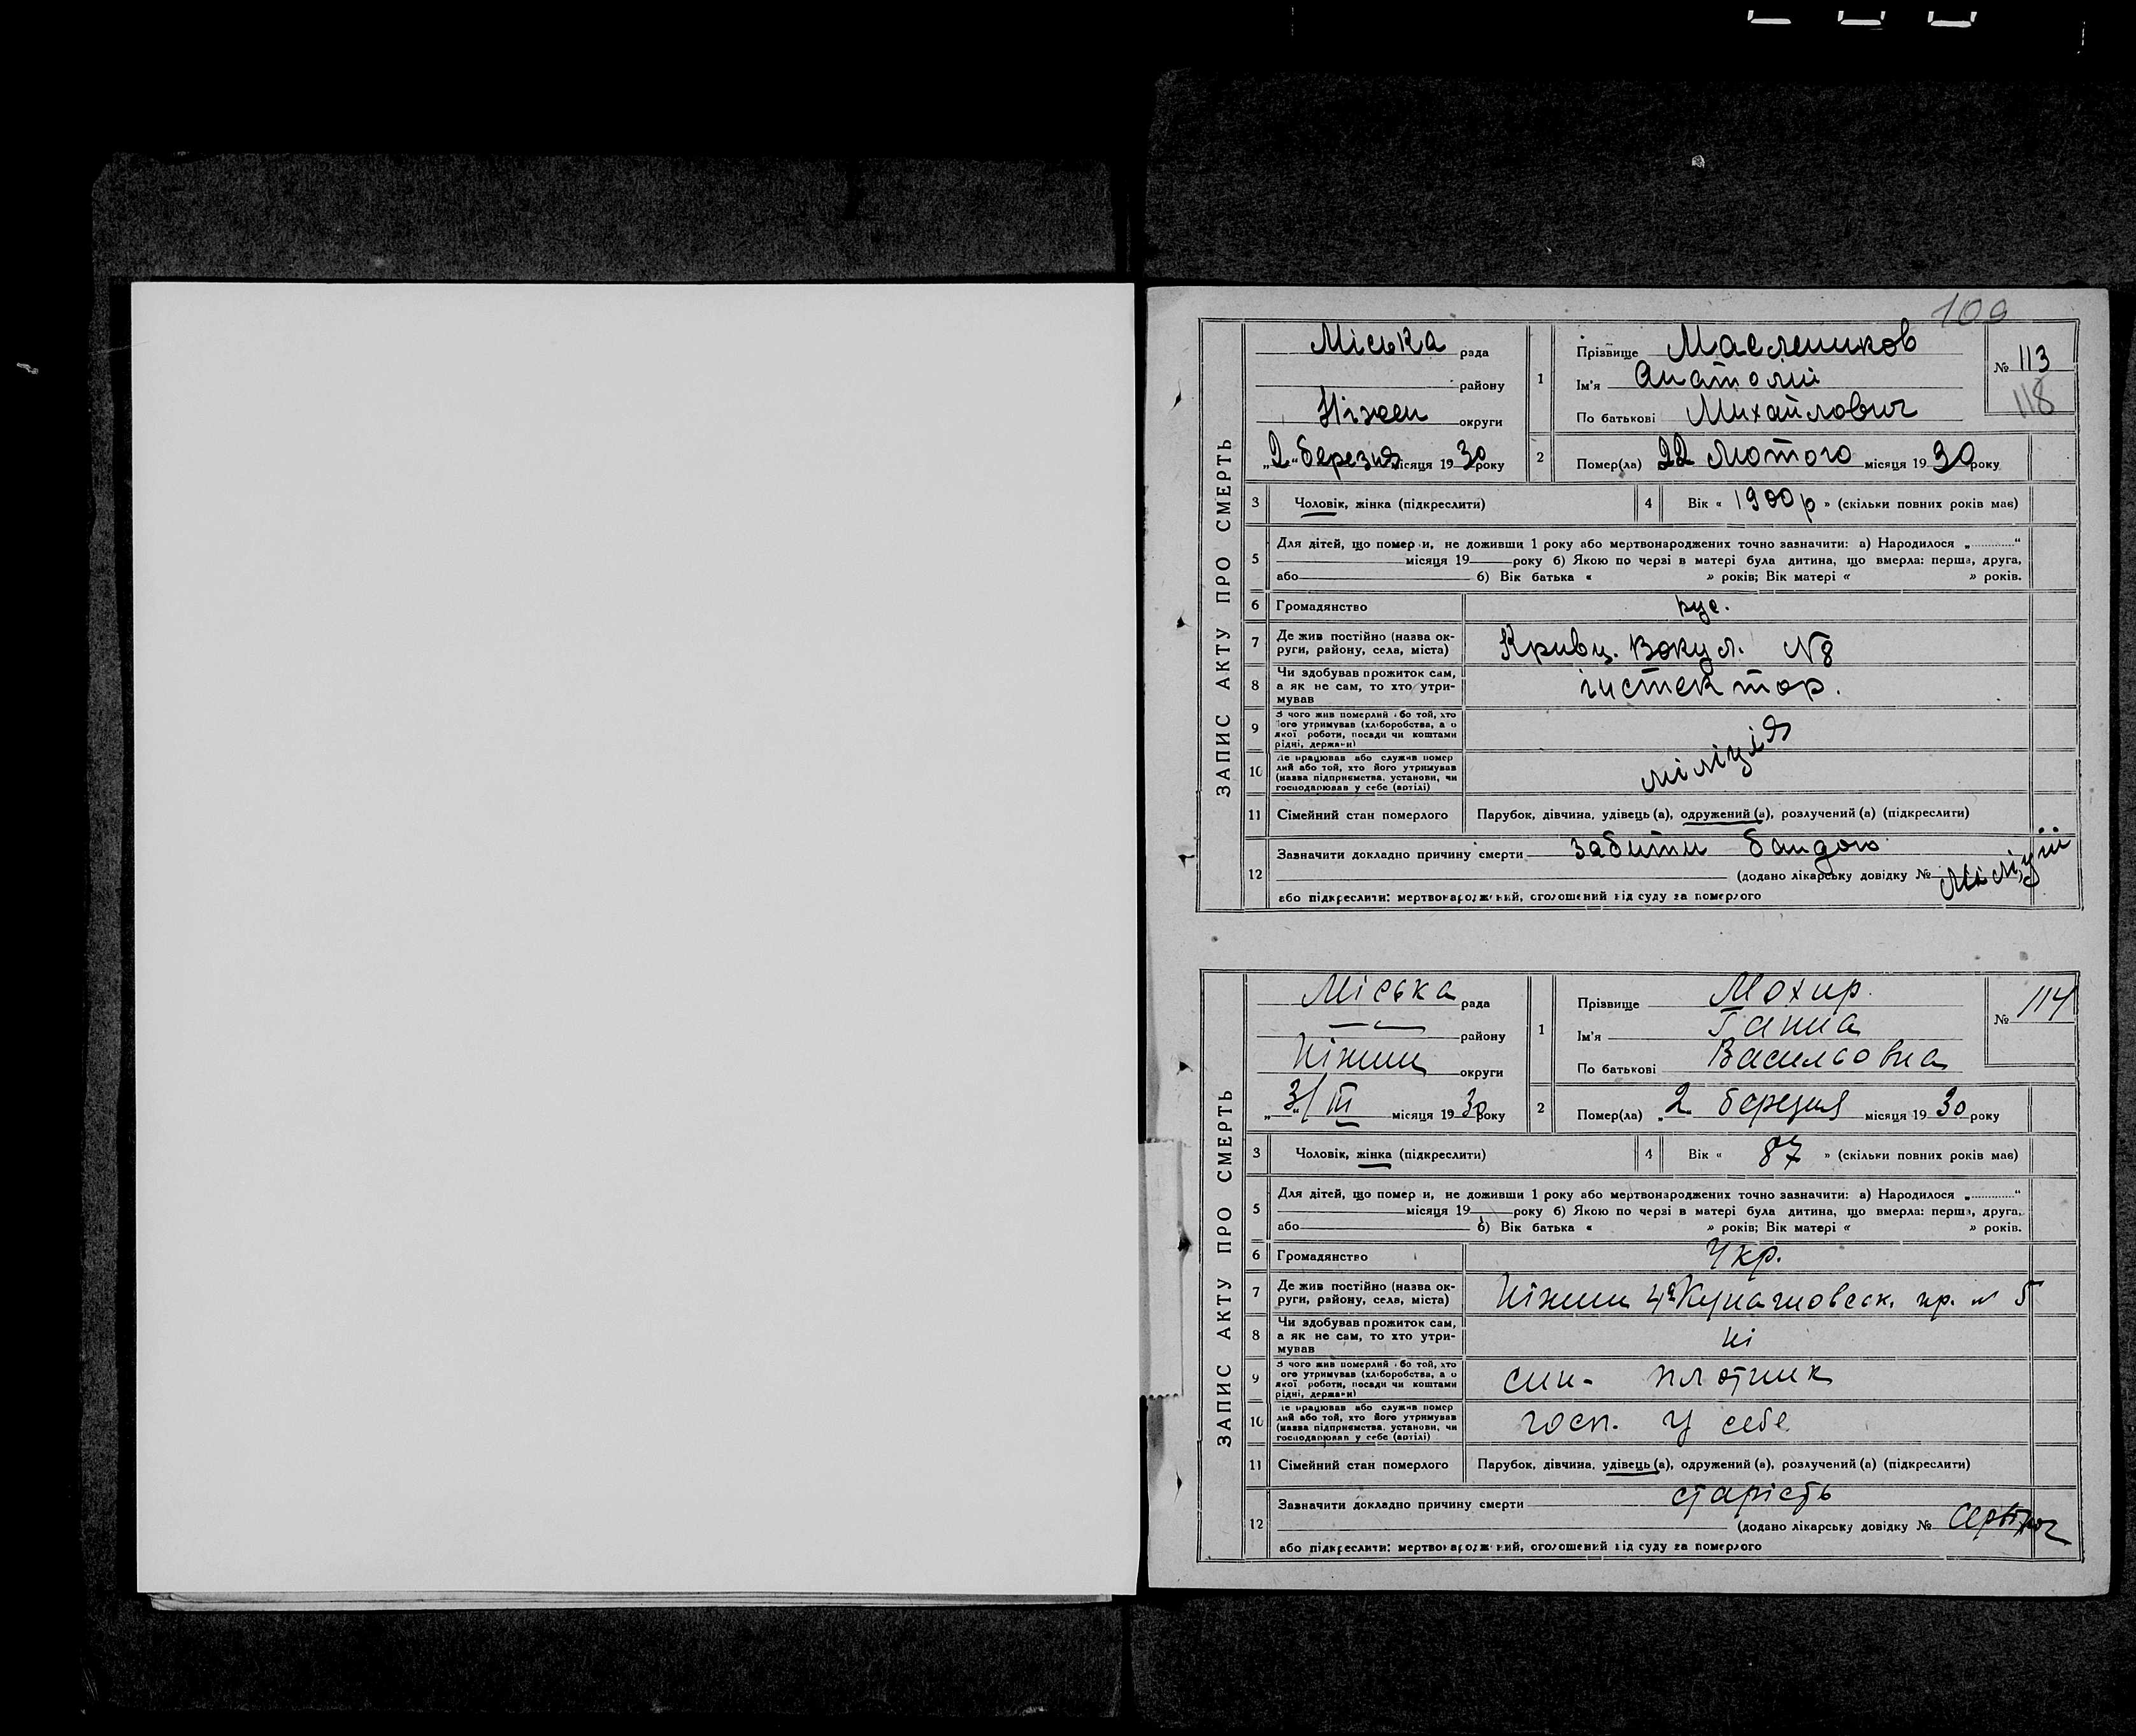 109
ЗАПИС АКТУ ПРО СМЕРТЬ
Міська рада
району
Ніжен округи
„2“ березня місяця 1930 року
1 Прізвище Маслеников
Ім'я Анатолій
По батькові Михайлович
№ 113
118
2 Помер(ла) 22 Лютого місяця 1930 року
3 Чоловік, жінка (підкреслити)
4 Вік « 1900 р » (скільки повних років має)
5 Для дітей, що помер и, не доживши 1 року або мертвонароджених точно зазначити: а) Народилося „ “
місяця 19 року б) Якою по черзі в матері була дитина, що вмерла: перша, друга,
або б) Вік батька « » років; Вік матері « » років.
6 Громадянство рус.
7 Де жив постійно (назва ок-
руги, району, села, міста) Кривц. Вокул. №8
8 Чи здобував прожиток сам,
а як не сам, то хто утри-
мував інспектор.
9 З чого жив померлий або той, хто
його утримував (хліборобства, з
якої роботи, посади чи коштами
рідні, держави)
10 Де працював або служив помер
лий або той, хто його утримував
(назва підприємства, установи, чи
господарював у себе (артілі) міліція
11 Сімейний стан померлого Парубок, дівчина, удівець (а), одружений (а), розлучений (а) (підкреслити)
12 Зазначити докладно причину смерти забити бандою
(додано лікарську довідку № Міліції
або підкреслити: мертвонароджений, оголошений від суду за померлого
ЗАПИС АКТУ ПРО СМЕРТЬ
Міська рада
району
Ніжин округи
„3/“ III місяця 1930 року
1 Прізвище Мохир.
Ім'я Ганна
По батькові Васильовна
№ 114
2 Помер(ла) „2 березня місяця 1930 року
3 Чоловік, жінка (підкреслити)
4 Вік « 87 » (скільки повних років має)
5 Для дітей, що помер и, не доживши 1 року або мертвонароджених точно зазначити: а) Народилося „ “
місяця 19 року б) Якою по черзі в матері була дитина, що вмерла: перша, друга,
або б) Вік батька « » років; Вік матері « » років.
6 Громадянство Укр.
7 Де жив постійно (назва ок-
руги, району, села, міста) Ніжин пр. № 5
8 Чи здобував прожиток сам,
а як не сам, то хто утри-
мував ні
9 З чого жив померлий або той, хто
його утримував (хліборобства, з
якої роботи, посади чи коштами
рідні, держави) син- плотник
10 Де працював або служив помер
лий або той, хто його утримував
(назва підприємства, установи, чи
господарював у себе (артілі) госп. у себе
11 Сімейний стан померлого Парубок, дівчина, удівець (а), одружений (а), розлучений (а) (підкреслити)
12 Зазначити докладно причину смерти старість
(додано лікарську довідку №
або підкреслити: мертвонароджений, оголошений від суду за померлого